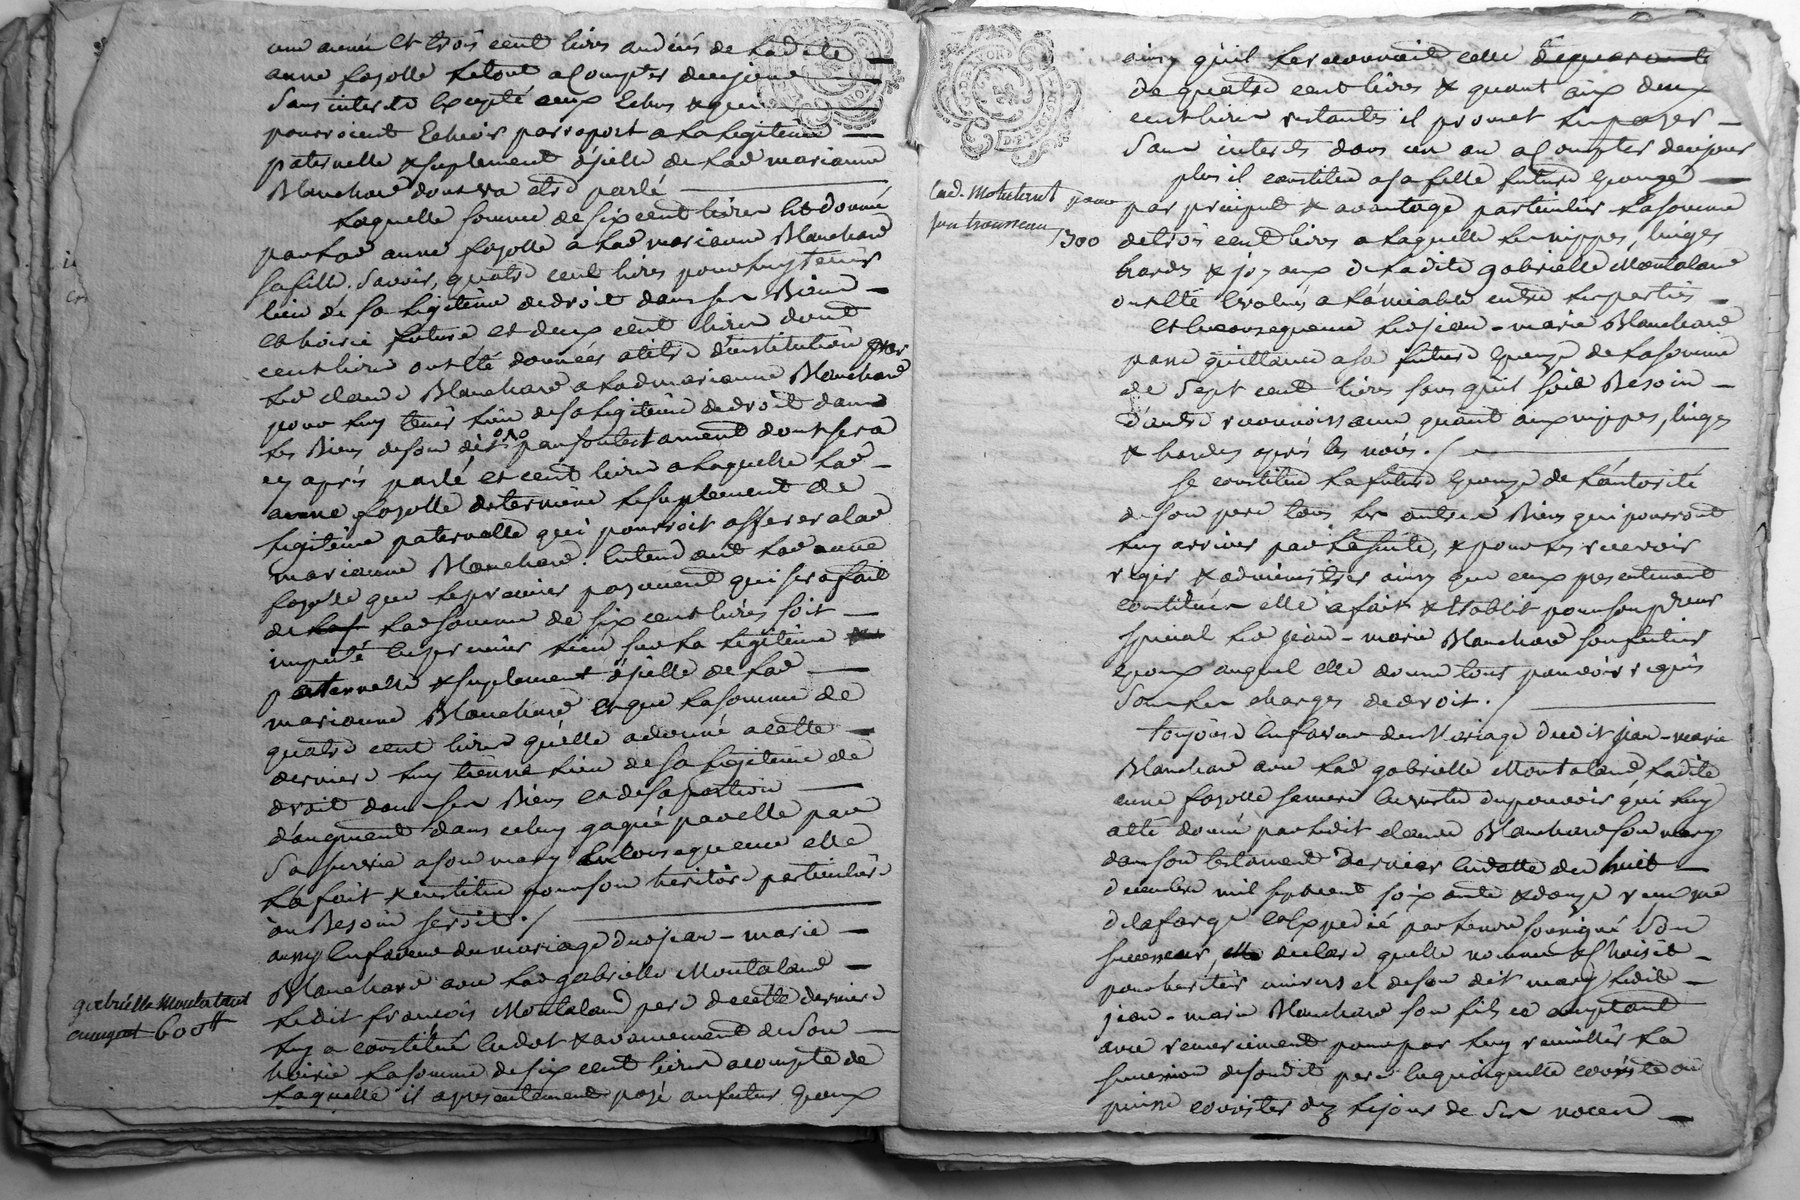 une année et trois cent livres audécés de ladite
anne fayolle le tout a Compter de ce jour
sans interets Excepté ceux Echus & qui
pourroient Echeoir parraport a la legitime
paternelle & suplement d'jcelle de lad marianne
Blanchard dont va etre parlé
Laquelle somme de six cent livres Est donné
par lad anne fayolle a lad marianne Blanchard
sa fille. Savoir, quatre cent livres pour luy tenir
lieu de sa legitime de droit dans ses Biens
et hoirie future, et deux cent livres dont
cent livres ont Eté données a titre d'institution par
led claude Blanchard a lad marianne Blanchard
pour luy tenir lieu de sa legitime de droit dans
les Biens de son dit par son testament dont sera
cy aprés parlé et cent livres a laquelle lad
anne fayolle determine le suplement de
legitime paternelle qui pourroit afferer a lad
marianne Blanchard. Entendant lad anne
fayolle que le premier payement qui sera fait
de lad somme de six cent livres soit
imputé en premier lieu sur la legitime
paternelle & suplement d'jcelle de lad
marianne Blanchard et que la somme de
quatre cent livres qu'elle a donné a cette
derniere luy tienne lieu de sa legitime de
droit dans ses Biens et de sa portion
d'augment dans celuy gagné par elle par
sa survie a son mary En consequence elle
la fait & institue pour son heritiere particuliere
ou Besoin seroit./
aussy En faveur du mariage dud jean-marie
Blanchard avec lad gabrielle Montaland
ledit françois Montaland pere de cette derniere
luy a constitué En dot & avancement de son
hoirie la somme de six cent livres a compte de
laquelle il a presentement payé au futur Epoux
gabriélle Montaland
augment 600ᵗᵗ
ainsy qu'il le reconnoit celle de quarante
de quatre cent livres & quant aux deux
cent livres restantes il promet les payer
sans interets dans un an a Compter de ce jour
plus il constitue a sa fille future Epouse
par preciput & avantage particulier la somme
de trois cent livres a laquelle les nippes, linges
hardes & joyaux de ladite gabrielle Montaland
ont Eté Evalués a l'amiable entre les parties
Et En consequence led jean-marie Blanchard
passe quittance a sa future Epouse de la somme
de Sept cent livres sans qu'il soit Besoin
d'autre reconnoissance quant aux nippes, linges
& hardes aprés les nôces./
Se constitue la future Epouse de l'autorité
de son pere tous les autres Biens qui pourront
luy arriver par la suite, & pour les recevoir
regir & administrer ainsy que ceux presentement
constitués elle a fait & Etablit pour son preur
special led jean-marie Blanchard son futur
Epoux auquel elle donne tout pouvoir requis
sous les charges de droit./
Toujours En faveur du Mariage dudit jean-marie
Blanchard avec lad gabrielle Montaland ladite
anne fayolle sa mere En vertu du pouvoir qui luy
a Eté donné par ledit claude Blanchard son mary
dans son testament dernier En datte du huit
decembre mil sept cent soixante & douze reçu me
delafarge Et Expedié par le nre soussigné Son
successeur, declare quelle nomme & Choisit
pour heritier universel de son dit mary ledit
jean-marie Blanchard son fils ce acceptant
avec remerciement pour par luy recuillir la
succession de sondit pere En quoy quelle consiste ou
puisse consister dez le jour de Ses noces
Lad. Montaland pour
son trousseau 300